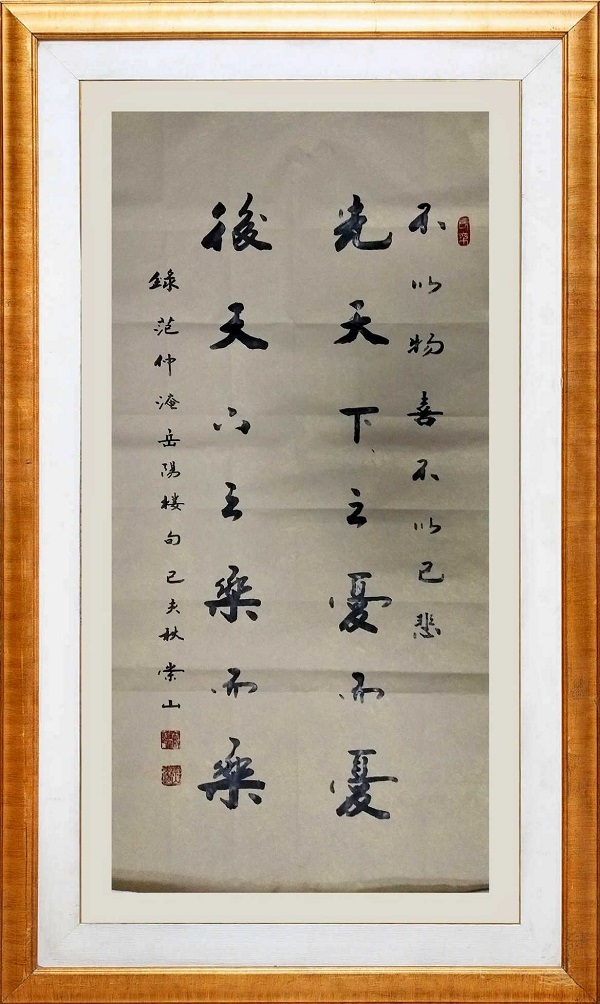 不以物喜不以己悲
先天下之憂而憂
後天下之樂而樂
錄范仲淹岳陽楼句己亥秋崇山